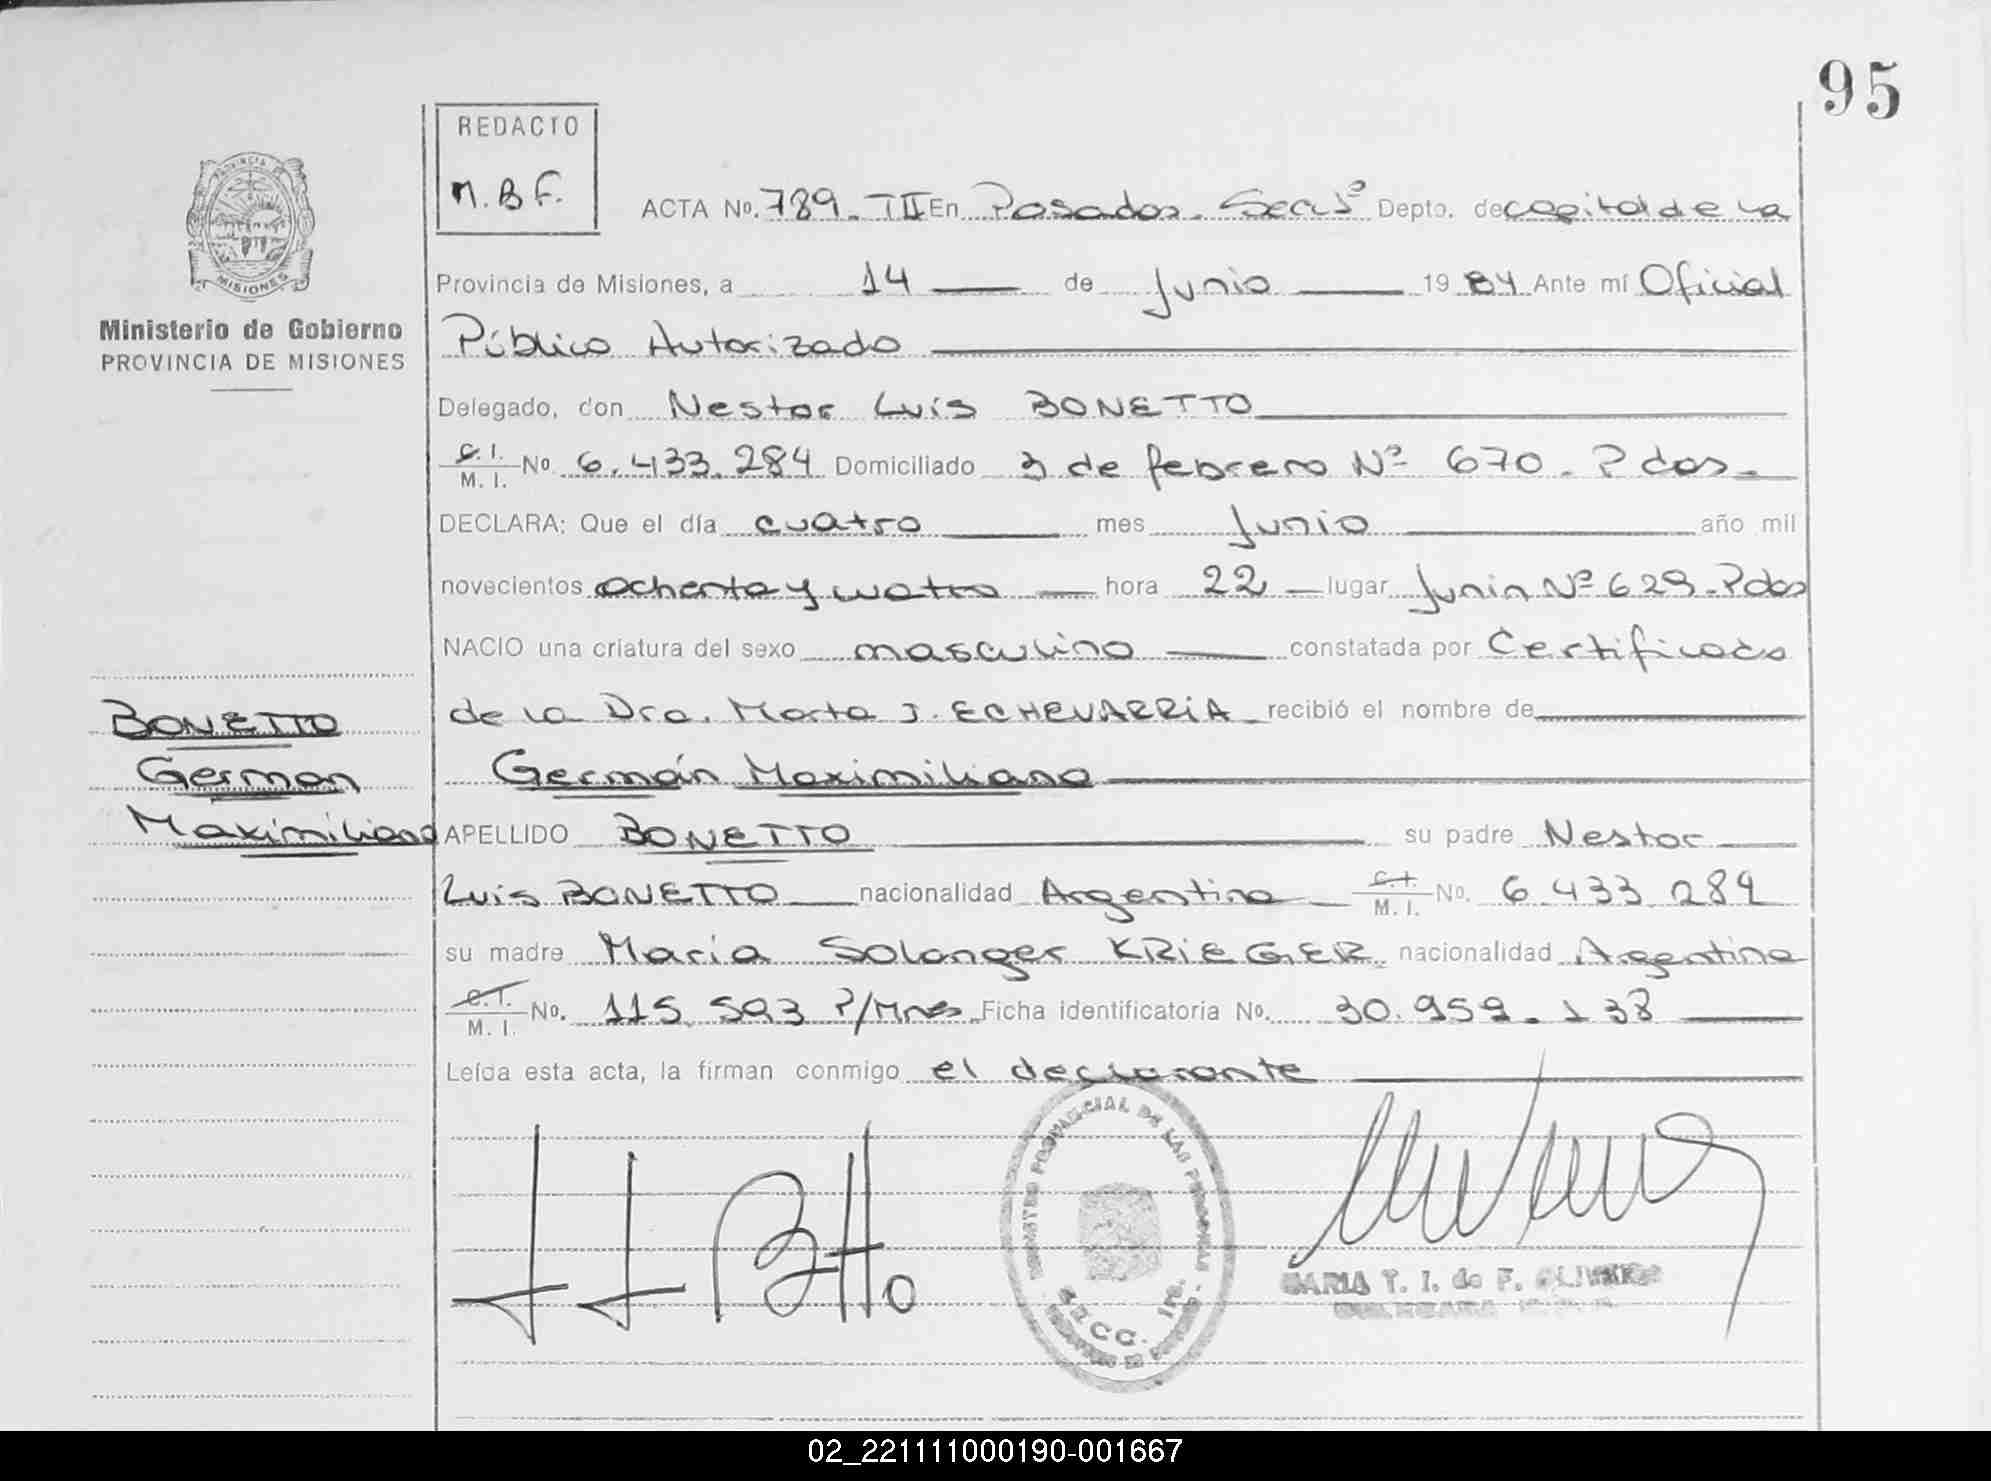 95
REDACTO
M.B.F.
ACTA Nº. 789. TII En Posadas. Secc 1ª Depto. de capital de la
PROVINCIA DE MISIONES
Ministerio de Gobierno
PROVINCIA DE MISIONES
Provincia de Misiones, a 14 de Junio 19 84 Ante mí Oficial
Público Autorizado
Delegado, don Nestor Luis BONETTO
C. I. / M. I. No 6.433.284 Domiciliado 3 de febrero Nº 670. Pdas.
DECLARA: Que el día cuatro mes Junio año mil
novecientos ochenta y cuatro hora 22 lugar Junin Nº 629. Pdas
NACIO una criatura del sexo masculino constatada por Certificado
de la Dra. Marta J. ECHEVARRIA recibió el nombre de
BONETTO
German
Maximiliano
Germán Maximiliano
APELLIDO BONETTO su padre Nestor
Luis BONETTO nacionalidad Argentina C. I. / M. I. No. 6.433.284
su madre Maria Solanger KRIEGER nacionalidad Argentina
C. I. / M. I. No. 115.593 P/Mnes Ficha identificatoria No. 30.959.138
Leída esta acta, la firman conmigo el declarante
REGISTRO PROVINCIAL DE LAS PERSONAS
SECC. 1ra.
MARIA T. I. de F. OLIVEIRA
02_221111000190-001667